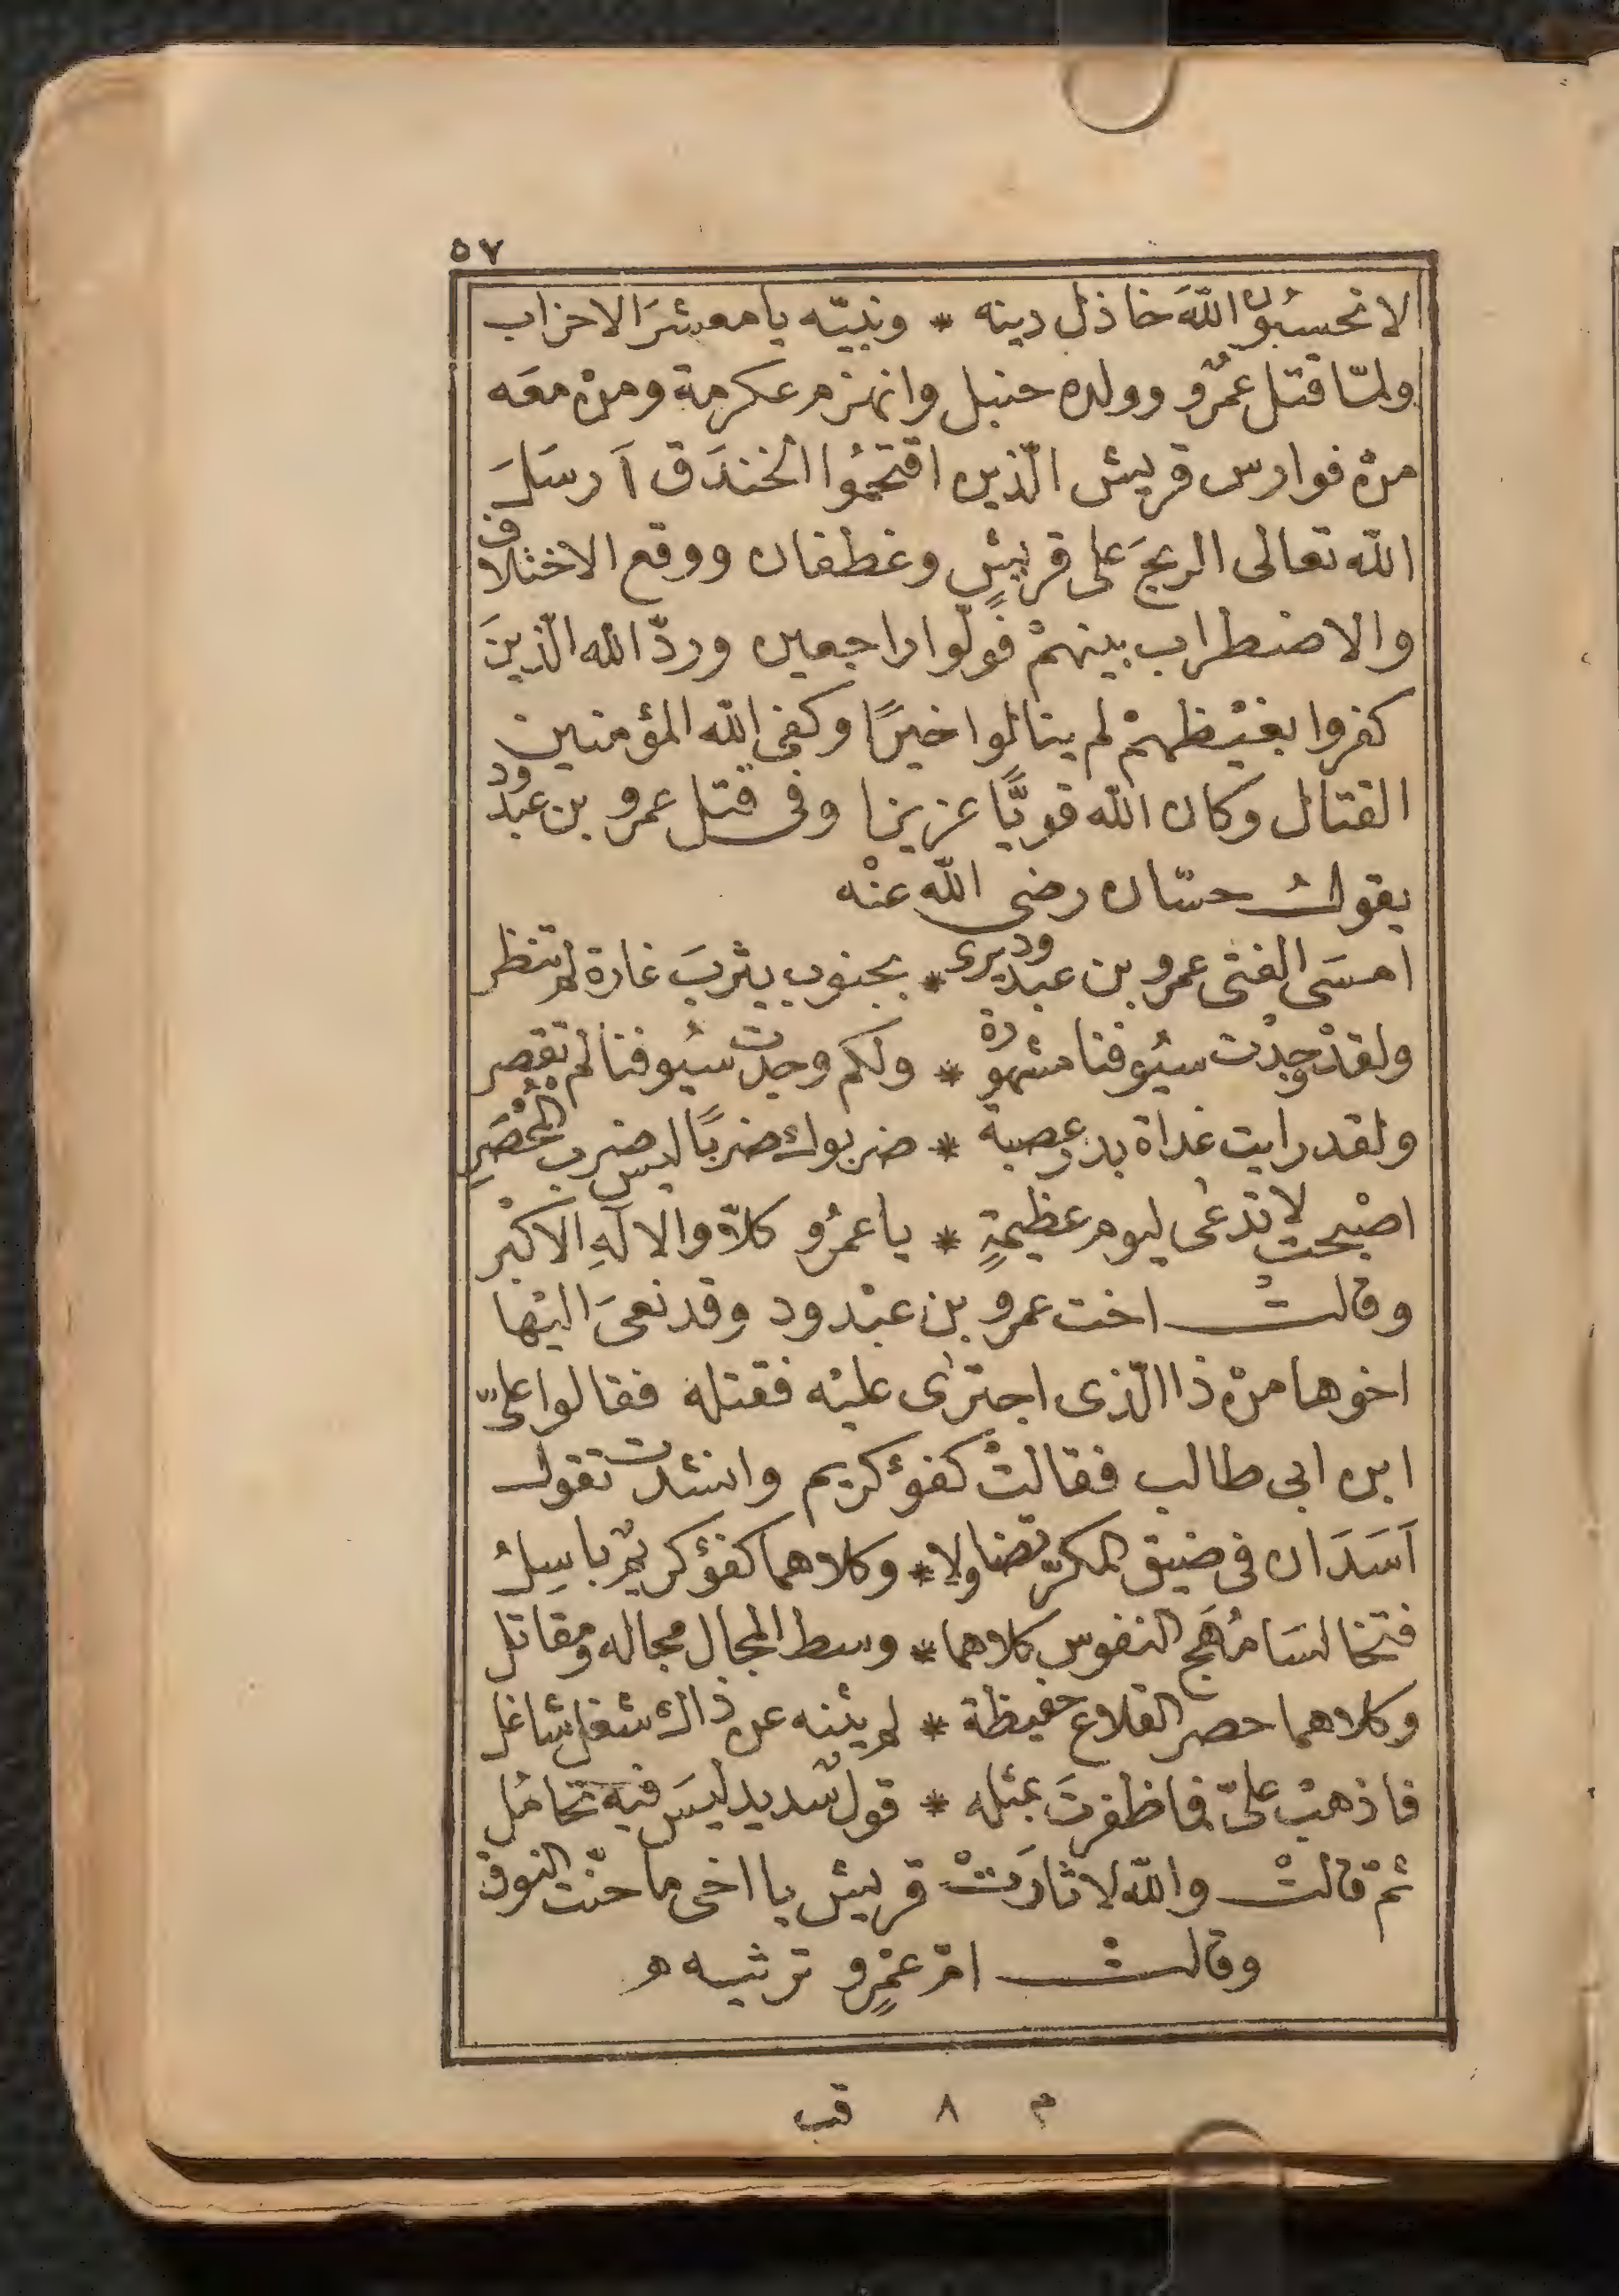 ٥٧
لا تحسبُونّ اللهَ خاذل دينه * ونبيّه يا معشرَ الاحزاب
ولمّا قتل عمْرٌو وولده حنبل وانهزم عكرمة ومنْ معَه
منْ فوارس قريش الّذين اقتحمُوا الخندَق اَرسَلَ
الله تعالى الريحَ على قريشٍ وغطفان ووقع الاختلاف
والاضطراب بينهمْ فولّوا راجعين وردّ الله الّذينَ
كفروا بغيْظهمْ لم ينالوا خيرًا وكفى الله المؤمنين
القتال وكان الله قويًّا عزيزا وفى قتل عمرو بن عبد ود
يقولُ حسّان رضى الله عنْه
امسَى الفتى عمرو بن عبد ود يرى * بجنوب يثربَ غارة لم تنظر
ولقدْ وجدْت سيُوفنا مشهورة * ولكم وجدت سيُوفنا لم تقصر
ولقد رايت غداة بدر عصبة * ضربوك ضربًا ليس ضرب المُحْصَرِ
اصْبحت لا تدعى ليوم عظيمةٍ * يا عمْرُو كلاّ والالَهِ الاكْبر
وقالتْ اخت عمرو بن عبْد ود وقد نعىَ اليْها
اخوها منْ ذا الّذى اجترى عليْه فقتله فقالوا علىّ
ابن ابى طالب فقالتْ كفؤ كريم وانشدت تقول
اَسَدَان فى ضيق المكرّ تضاولا * وكلاهما كفؤ كريمٌ باسِلُ
فتخالسَا مُهَج النفوس كلاهما * وسط المجال مجاله ومقاتل
وكلاهما حصر القلاع حفيظة * لم يثنه عن ذاك شغل شاغل
فاذهبْ علىّ فاظفرتَ بمثله * قولٌ سديد ليسَ فيه تحامُل
ثمّ قالتْ والله لا ثارَتْ قريش يا اخى ما حنّت النوق
وقالتْ امّ عمْرٍو ترثيه ه
م ٨ قب